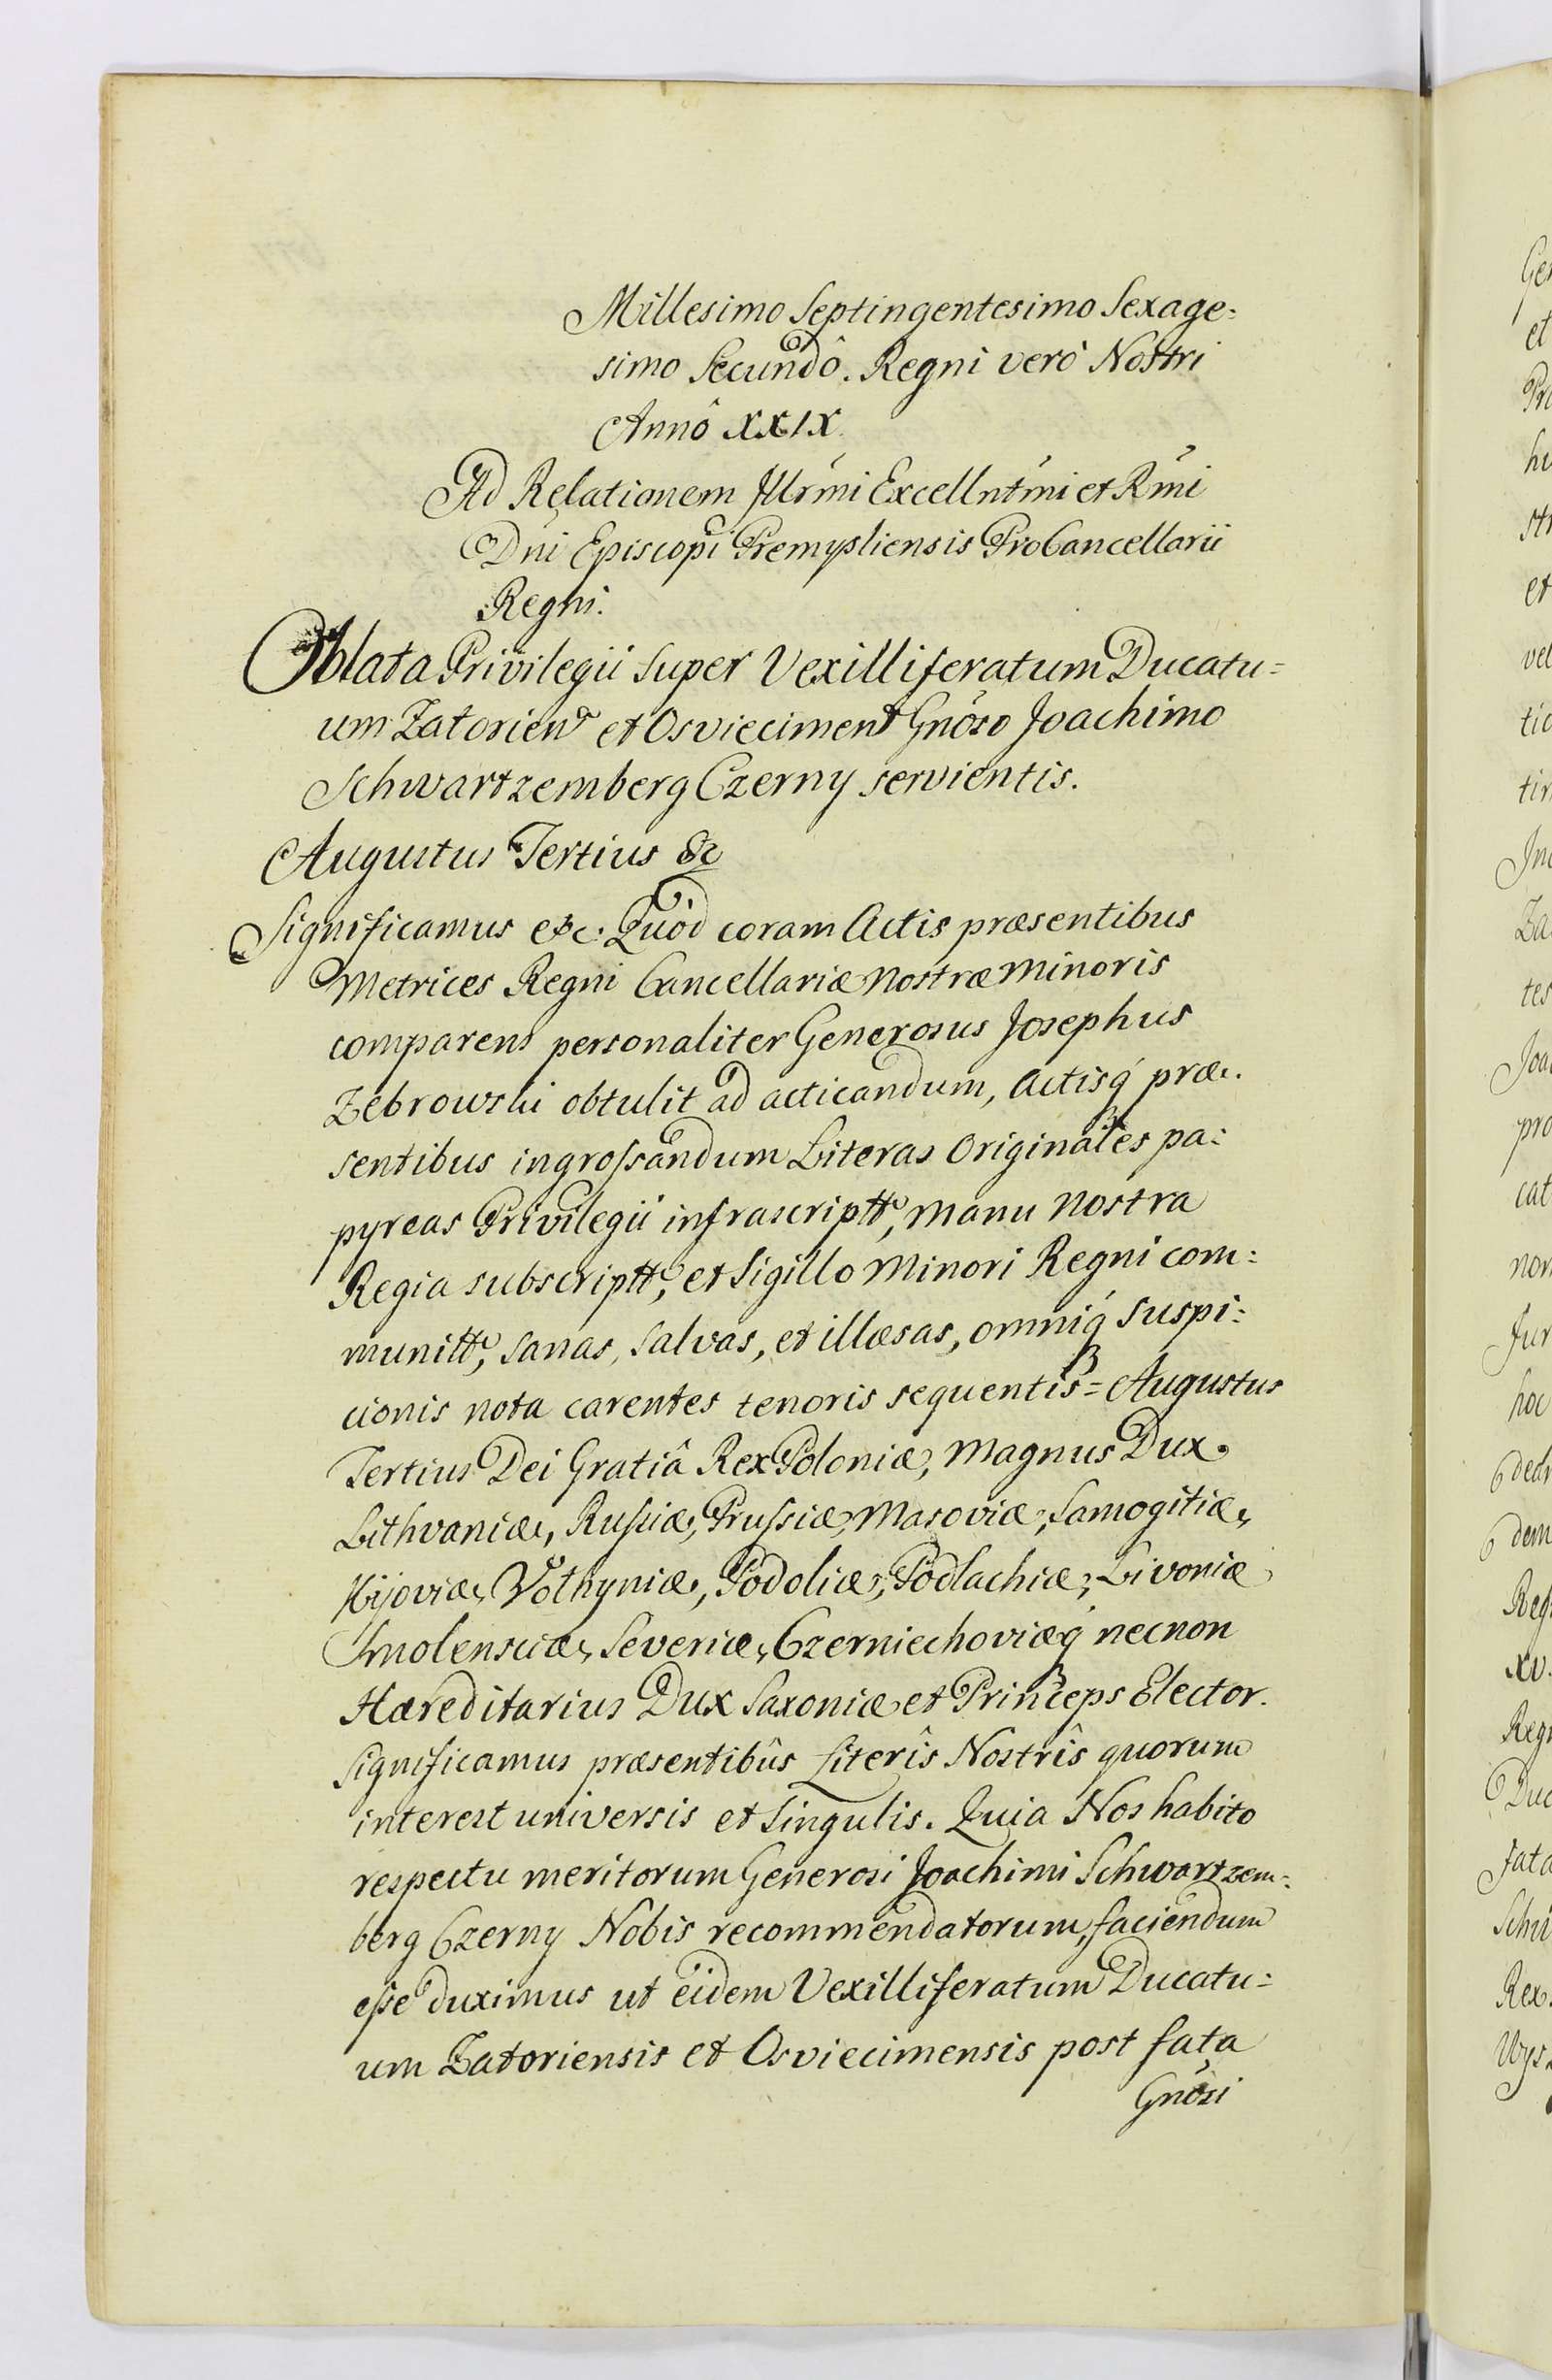 Millesimo Septingentesimo Sexage=
simo Secundô. Regni verò Nostri
Annô XXIX.
Ad Relationem Illrmi Excellntmi et Rmi
Dni Episcopi Premysliensis ProCancellarii
Regni.
Oblata Privilegii super Vexilliferatum Ducatu=
um Zatorien et Osviecimen Gnoso Joachimo
Schwartzemberg Czerny servientis.
Augustus Tertius &c
Significamus etc. Quòd coram Actis præsentibus
Metrices Regni Cancellariæ Nostræ Minoris
comparens personaliter Generosus Josephus
Zebrowski obtulit ad acticandum, Actisq́ præ=
sentibus ingrossandum Literas Originales pa=
pyreas Privilegii infrascriptt, Manu Nostra
Regia subscriptt, et Sigillo Minori Regni com=
munitt, sanas, salvas, et illæsas, omniq́ suspi=
cionis nota carentes tenoris sequentis = Augustus
Tertius Dei Gratiâ Rex Poloniæ, Magnus Dux
Lithvaniæ, Russiæ, Prussiæ, Masoviæ, Samogitiæ,
Kijoviæ, Volhyniæ, Podoliæ, Podlachiæ, Livoniæ
Smolensciæ, Severiæ, Czerniechoviæq́ necnon
Hæreditarius Dux Saxoniæ et Princeps Elector.
Significamus præsentibûs Literîs Nostrîs quorum
interest universis et singulis. Quia Nos habito
respectu meritorum Generosi Joachimi Schwartzem=
berg Czerny Nobis recommendatorum, faciendum
esse duximus ut eidem Vexilliferatum Ducatu=
um Zatoriensis et Osviecimensis post fata
Gnosi